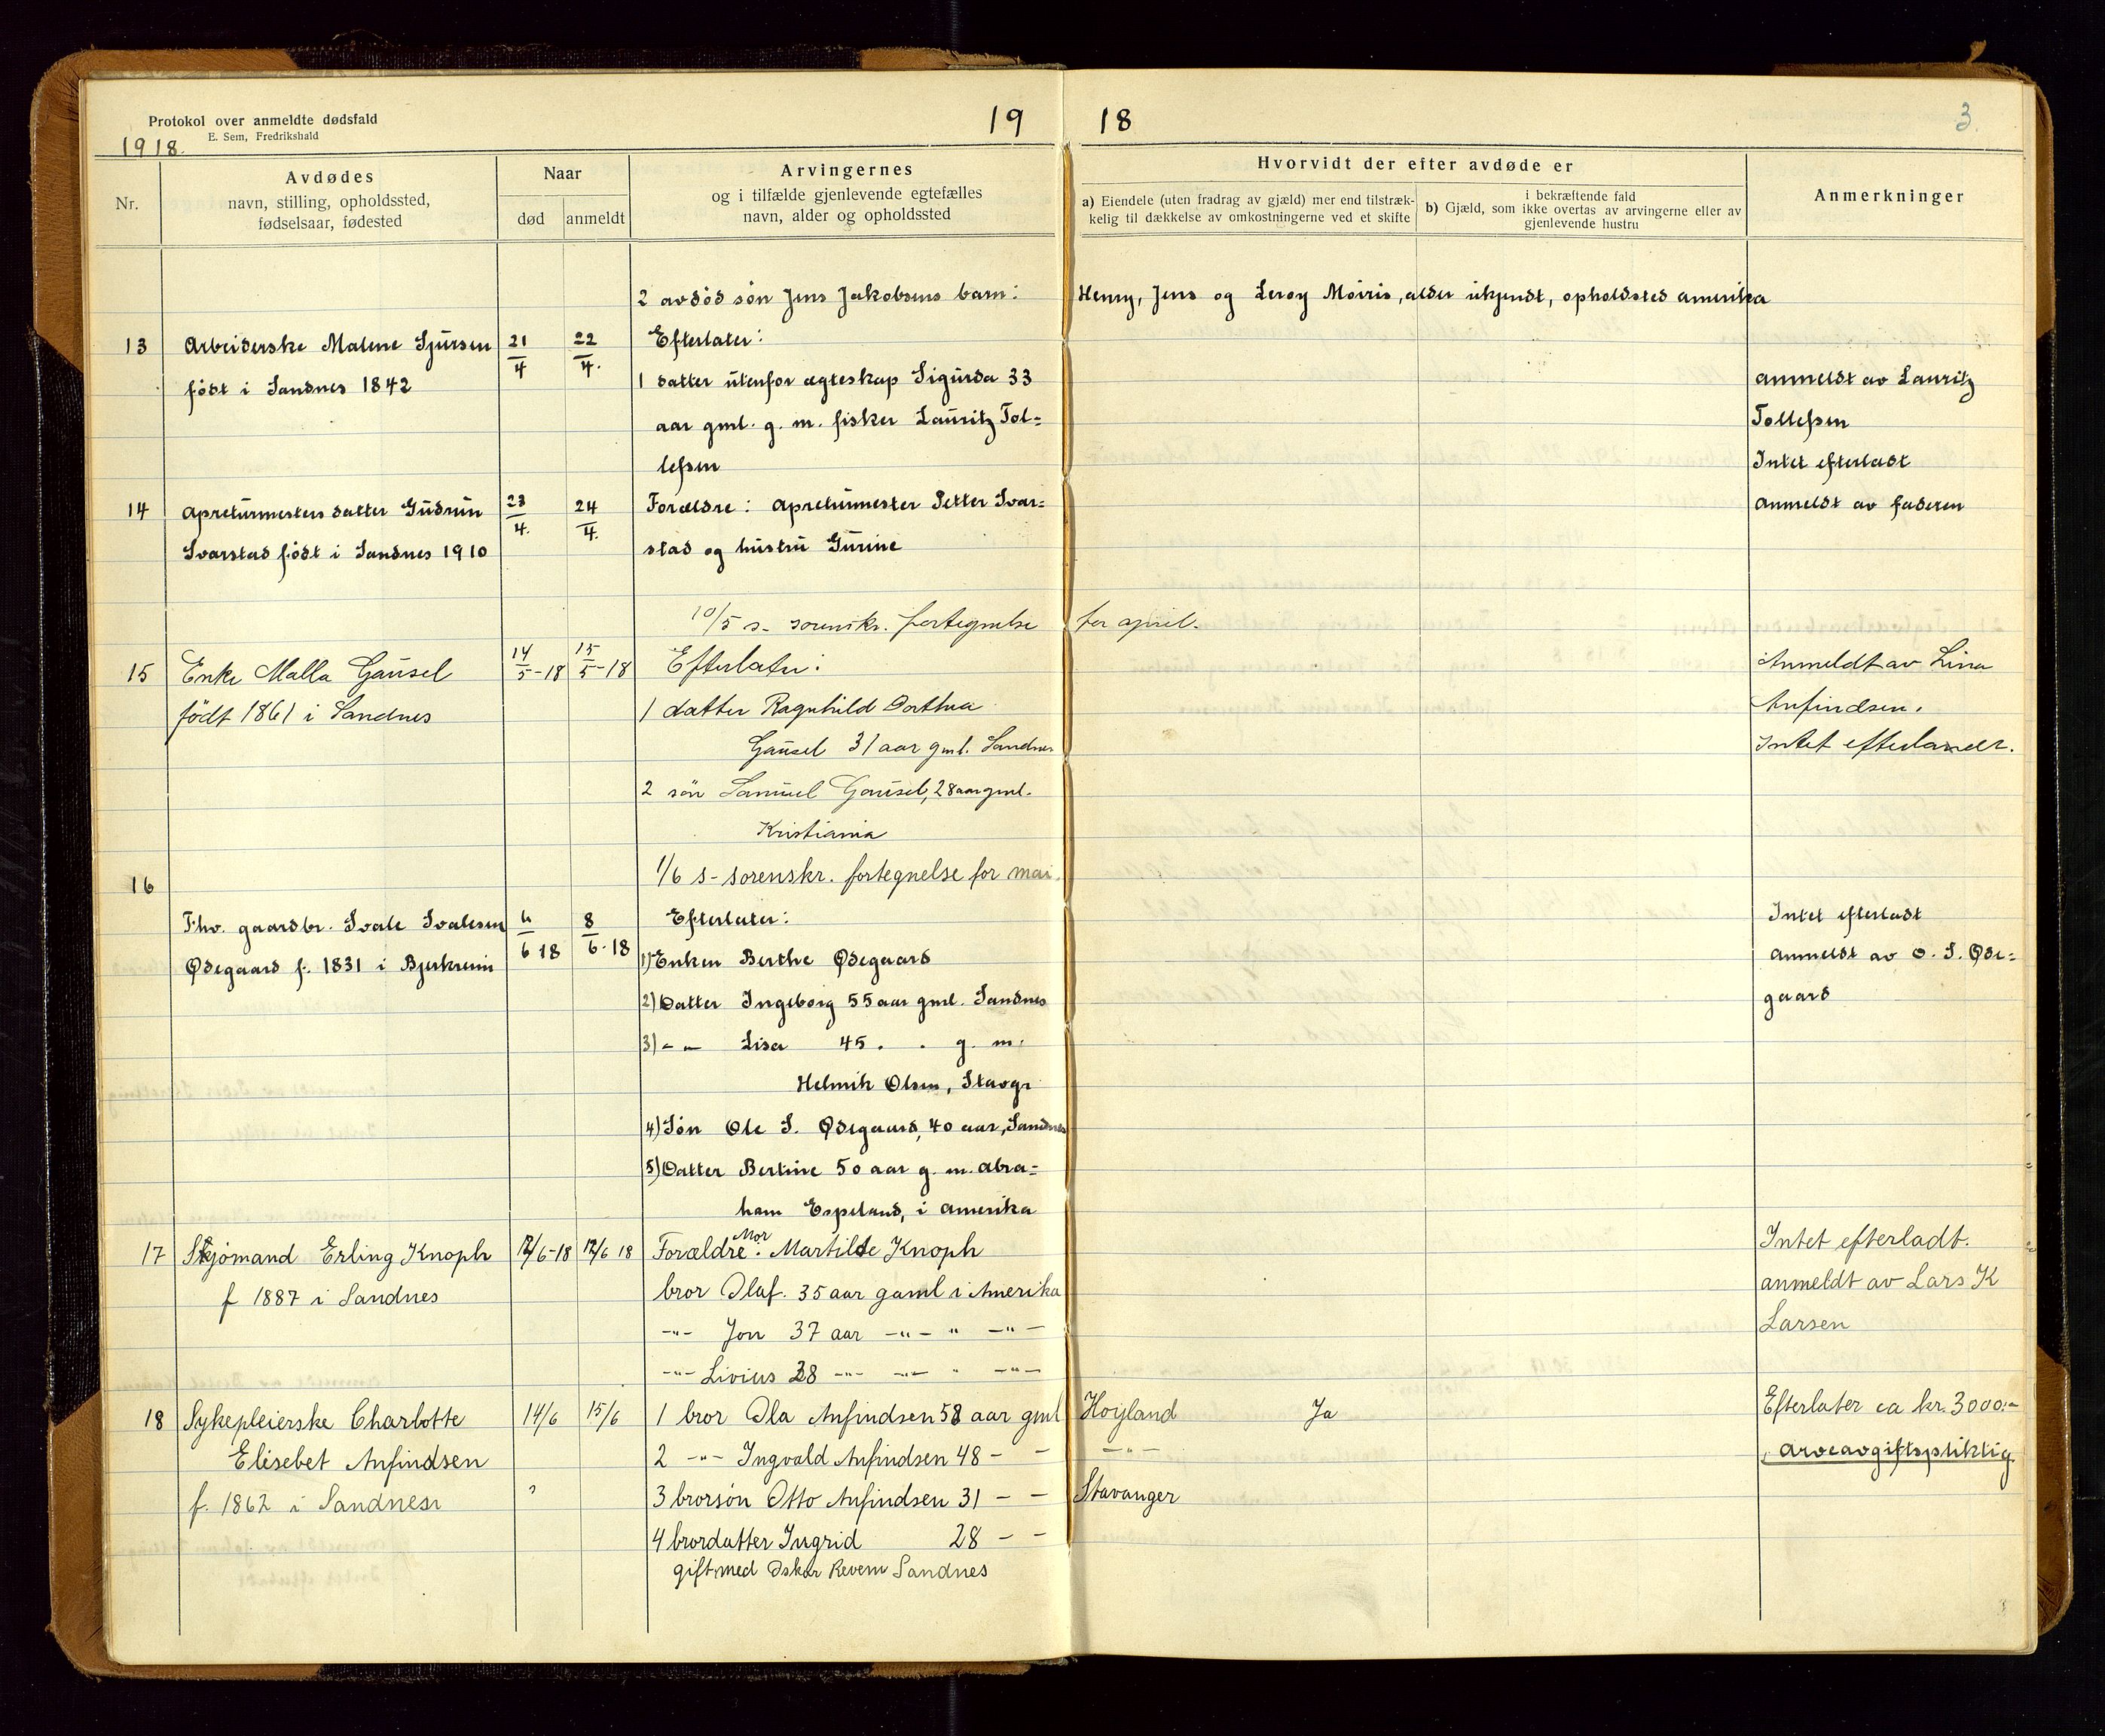 Protokol over anmeldte dødsfald
E. Sem, Fredrikshald
1918.
19 18
3.
Nr.
Avdødes
navn, stilling, opholdssted,
fødselsaar, fødested
Naar
død
anmeldt
Arvingernes
og i tilfælde gjenlevende egtefælles
navn, alder og opholdssted
Hvorvidt der efter avdøde er
a) Eiendele (uten fradrag av gjæld) mer end tilstræk-
kelig til dækkelse av omkostningerne ved et skifte
i bekræftende fald
b) Gjæld, som ikke overtas av arvingerne eller av
gjenlevende hustru
Anmerkninger
2 avdød søn Jens Jakobsens barn: Henry, Jens og Leroy Moiris, alder ukjendt, opholdsted amerika
13 Arbeiderske Malene Sjursen 21/4 22/4. Efterlater:
født i Sandnes 1842
1 datter utenfor ægteskap Sigurda 33
aar gml. g. m. fisker Lauritz Tol=
lefsen
anmeldt av Lauritz
Tollefsen
Intet efterladt
14 apreturmesters datter Gudrun 23/4. 24/4. Forældre: apreturmester Petter Svar=
Svarstad født i Sandnes 1910 stad og hustru Gurine
anmeldt av faderen
10/5 s- sorenskr. fortegnelse for april.
15 Enke Malla Gausel 14/5-18 15/5-18 Efterlater:
født 1861 i Sandnes
1 datter Ragnhild Dorthea
Gausel 31 aar gml. Sandnes
2 søn Samuel Gausel, 28 aar gml.
Kristiania
Anmeldt av Lina
Anfindsen.
Intet efterladt.
1/6 s- sorenskr. fortegnelse for mai.
16
Fhv. gaardbr. Svale Svalesen 6/6 18 8/6-18 Efterlater:
Ødegaard f. 1831 i Bjerkreim
1) Enken Berthe Ødegaard
2) Datter Ingeborg 55 aar gml. Sandnes
3) - " - Lisa 45 . . g. m.
Helmik Olsen, Stavgr
4) Søn Ole S. Ødegaard, 40 aar, Sandnes
5) Datter Bertine 50 aar g. m. abra=
ham Espeland, i amerika
Intet efterladt
anmeldt av O. S. Øde=
gaard
17 Skjømand Erling Knoph 12/6-18 12/6 18 Forældre: Mor Martilde Knoph
f 1887 i Sandnes
bror Olaf. 35 aar gaml i Amerika
-"- Jon 37 aar -"- " -"-
-"- Livius 28 -"- -"- " -"-
Intet efterladt.
anmeldt av Lars K
Larsen
18 Sykepleierske Charlotte 14/6 15/6 1 bror Ola Anfindsen 58 aar gml Høyland Ja
Elisebet Anfindsen 2 -"- Ingvald Anfindsen 48 - - -"-
f. 1862 i Sandnes 3 brorsøn Otto Anfindsen 31 - - Stavanger
4 brordatter Ingrid 28 - -
gift med Oskar Revem Sandnes
Efterlater ca kr. 3000.-
arveavgiftspliktig